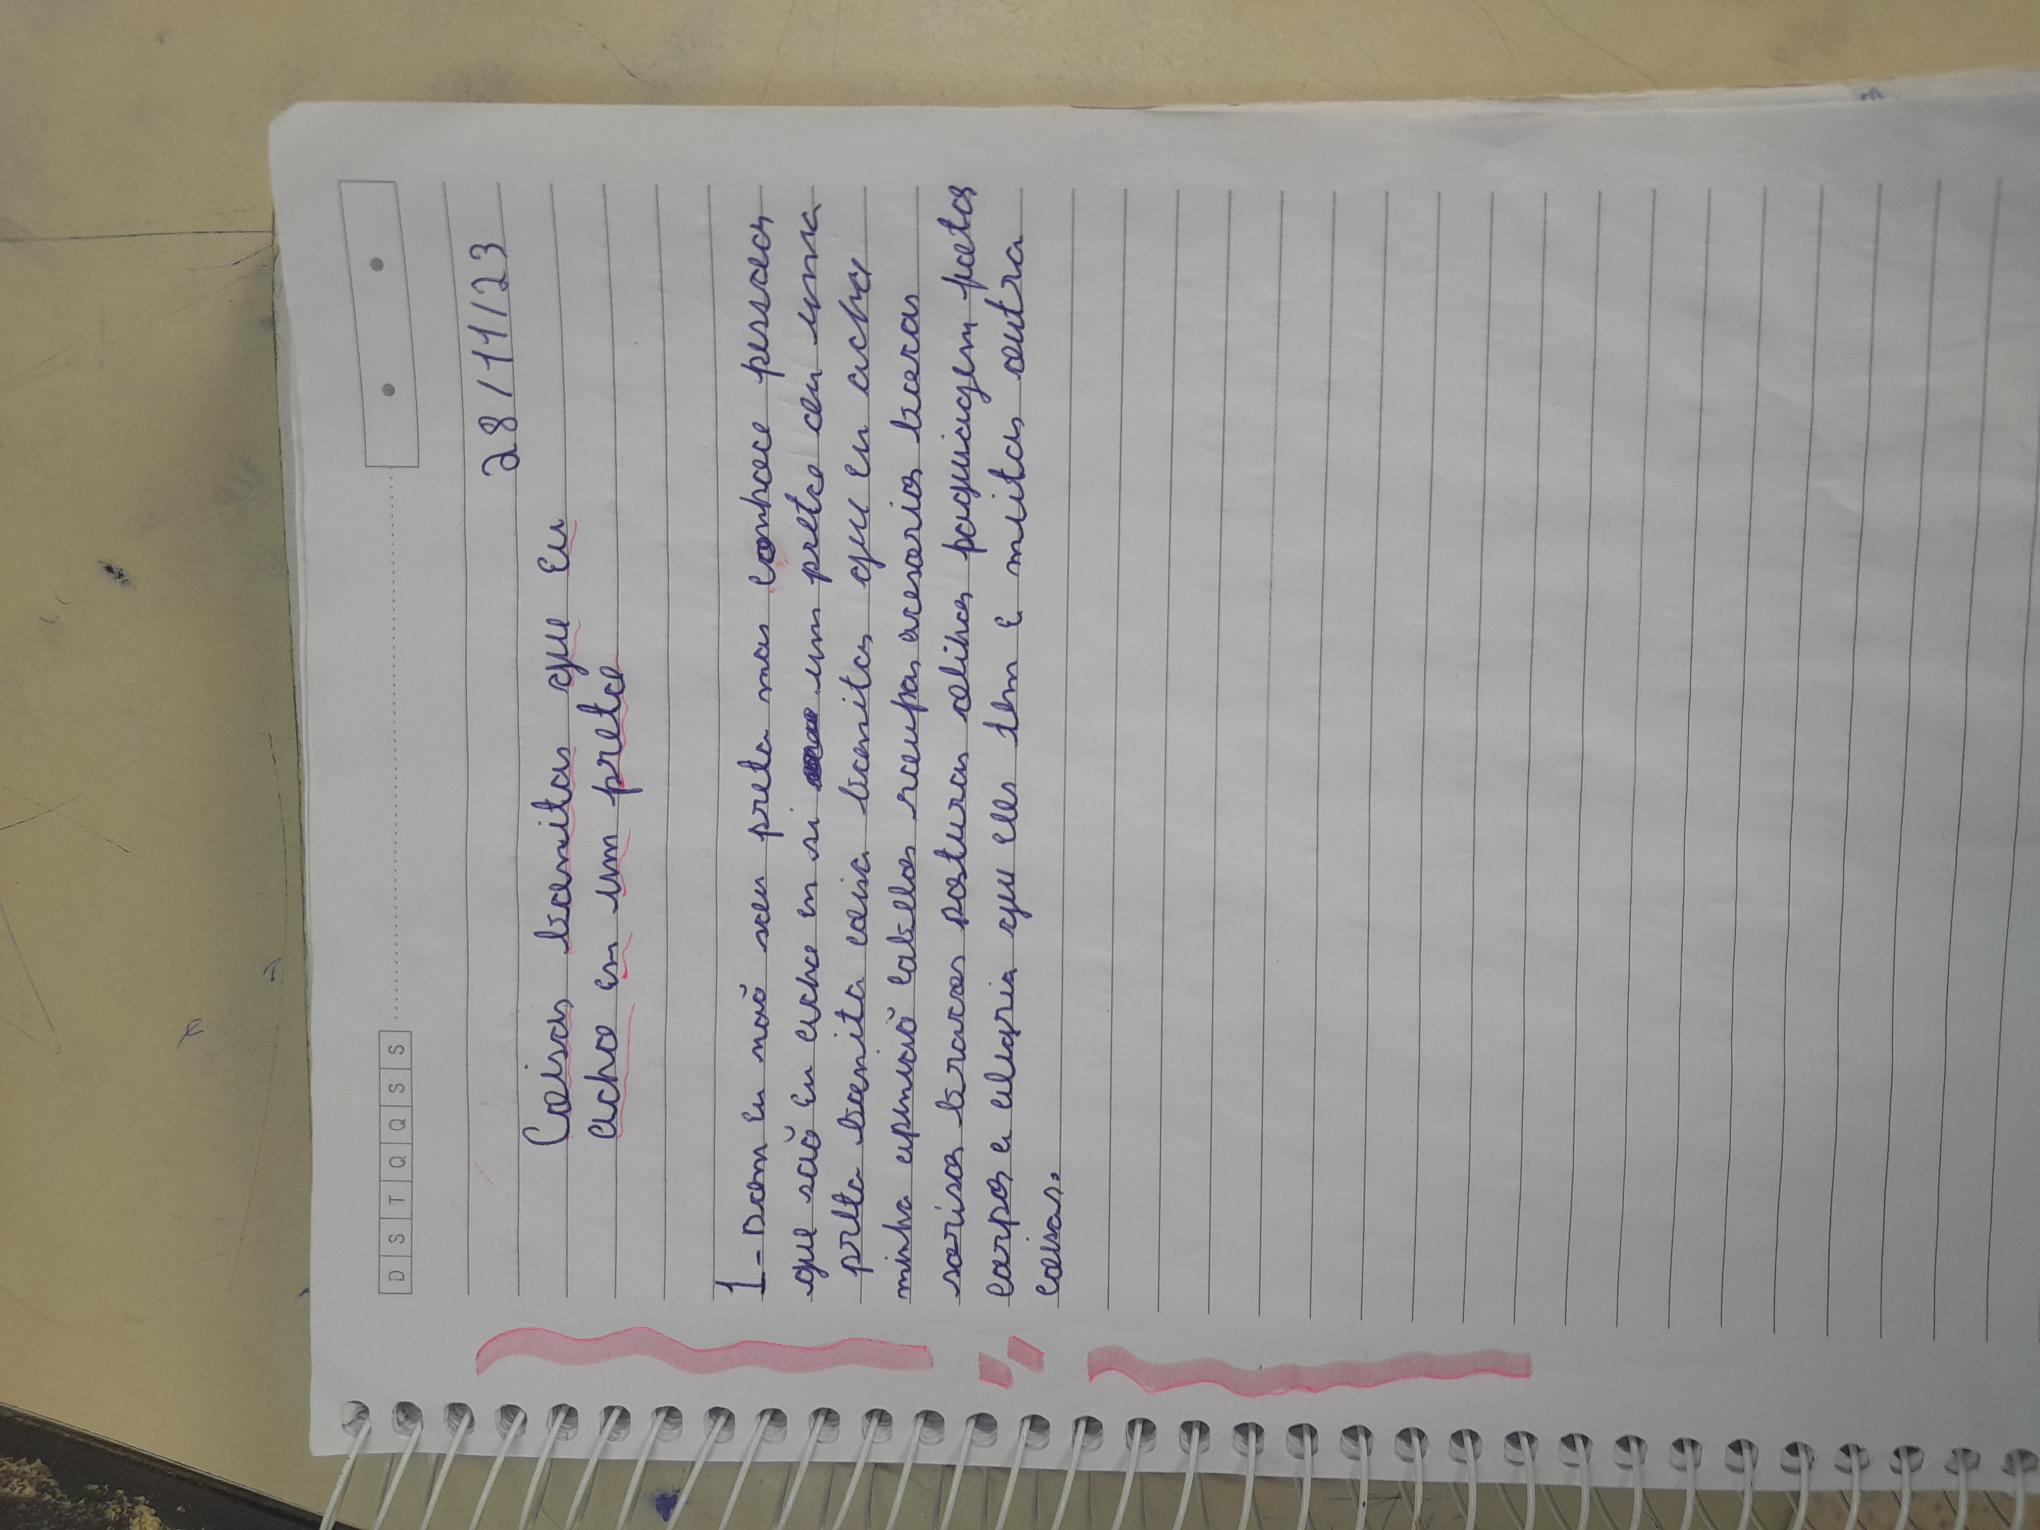 D S T Q Q S S
28/11/23
Coisas bonitas que eu
acho em um preto
1-Bom eu não sou preta mas conhoce pessoas
que são eu acho in si um preto ou uma
preta bonita coisa bonitas que eu acho
minha opinião cabellos roupas acesorios bocas
sorisos braços posturas olhos paquiagem peitos
corpos a alegria que eles tem e muitas outra
coisas.